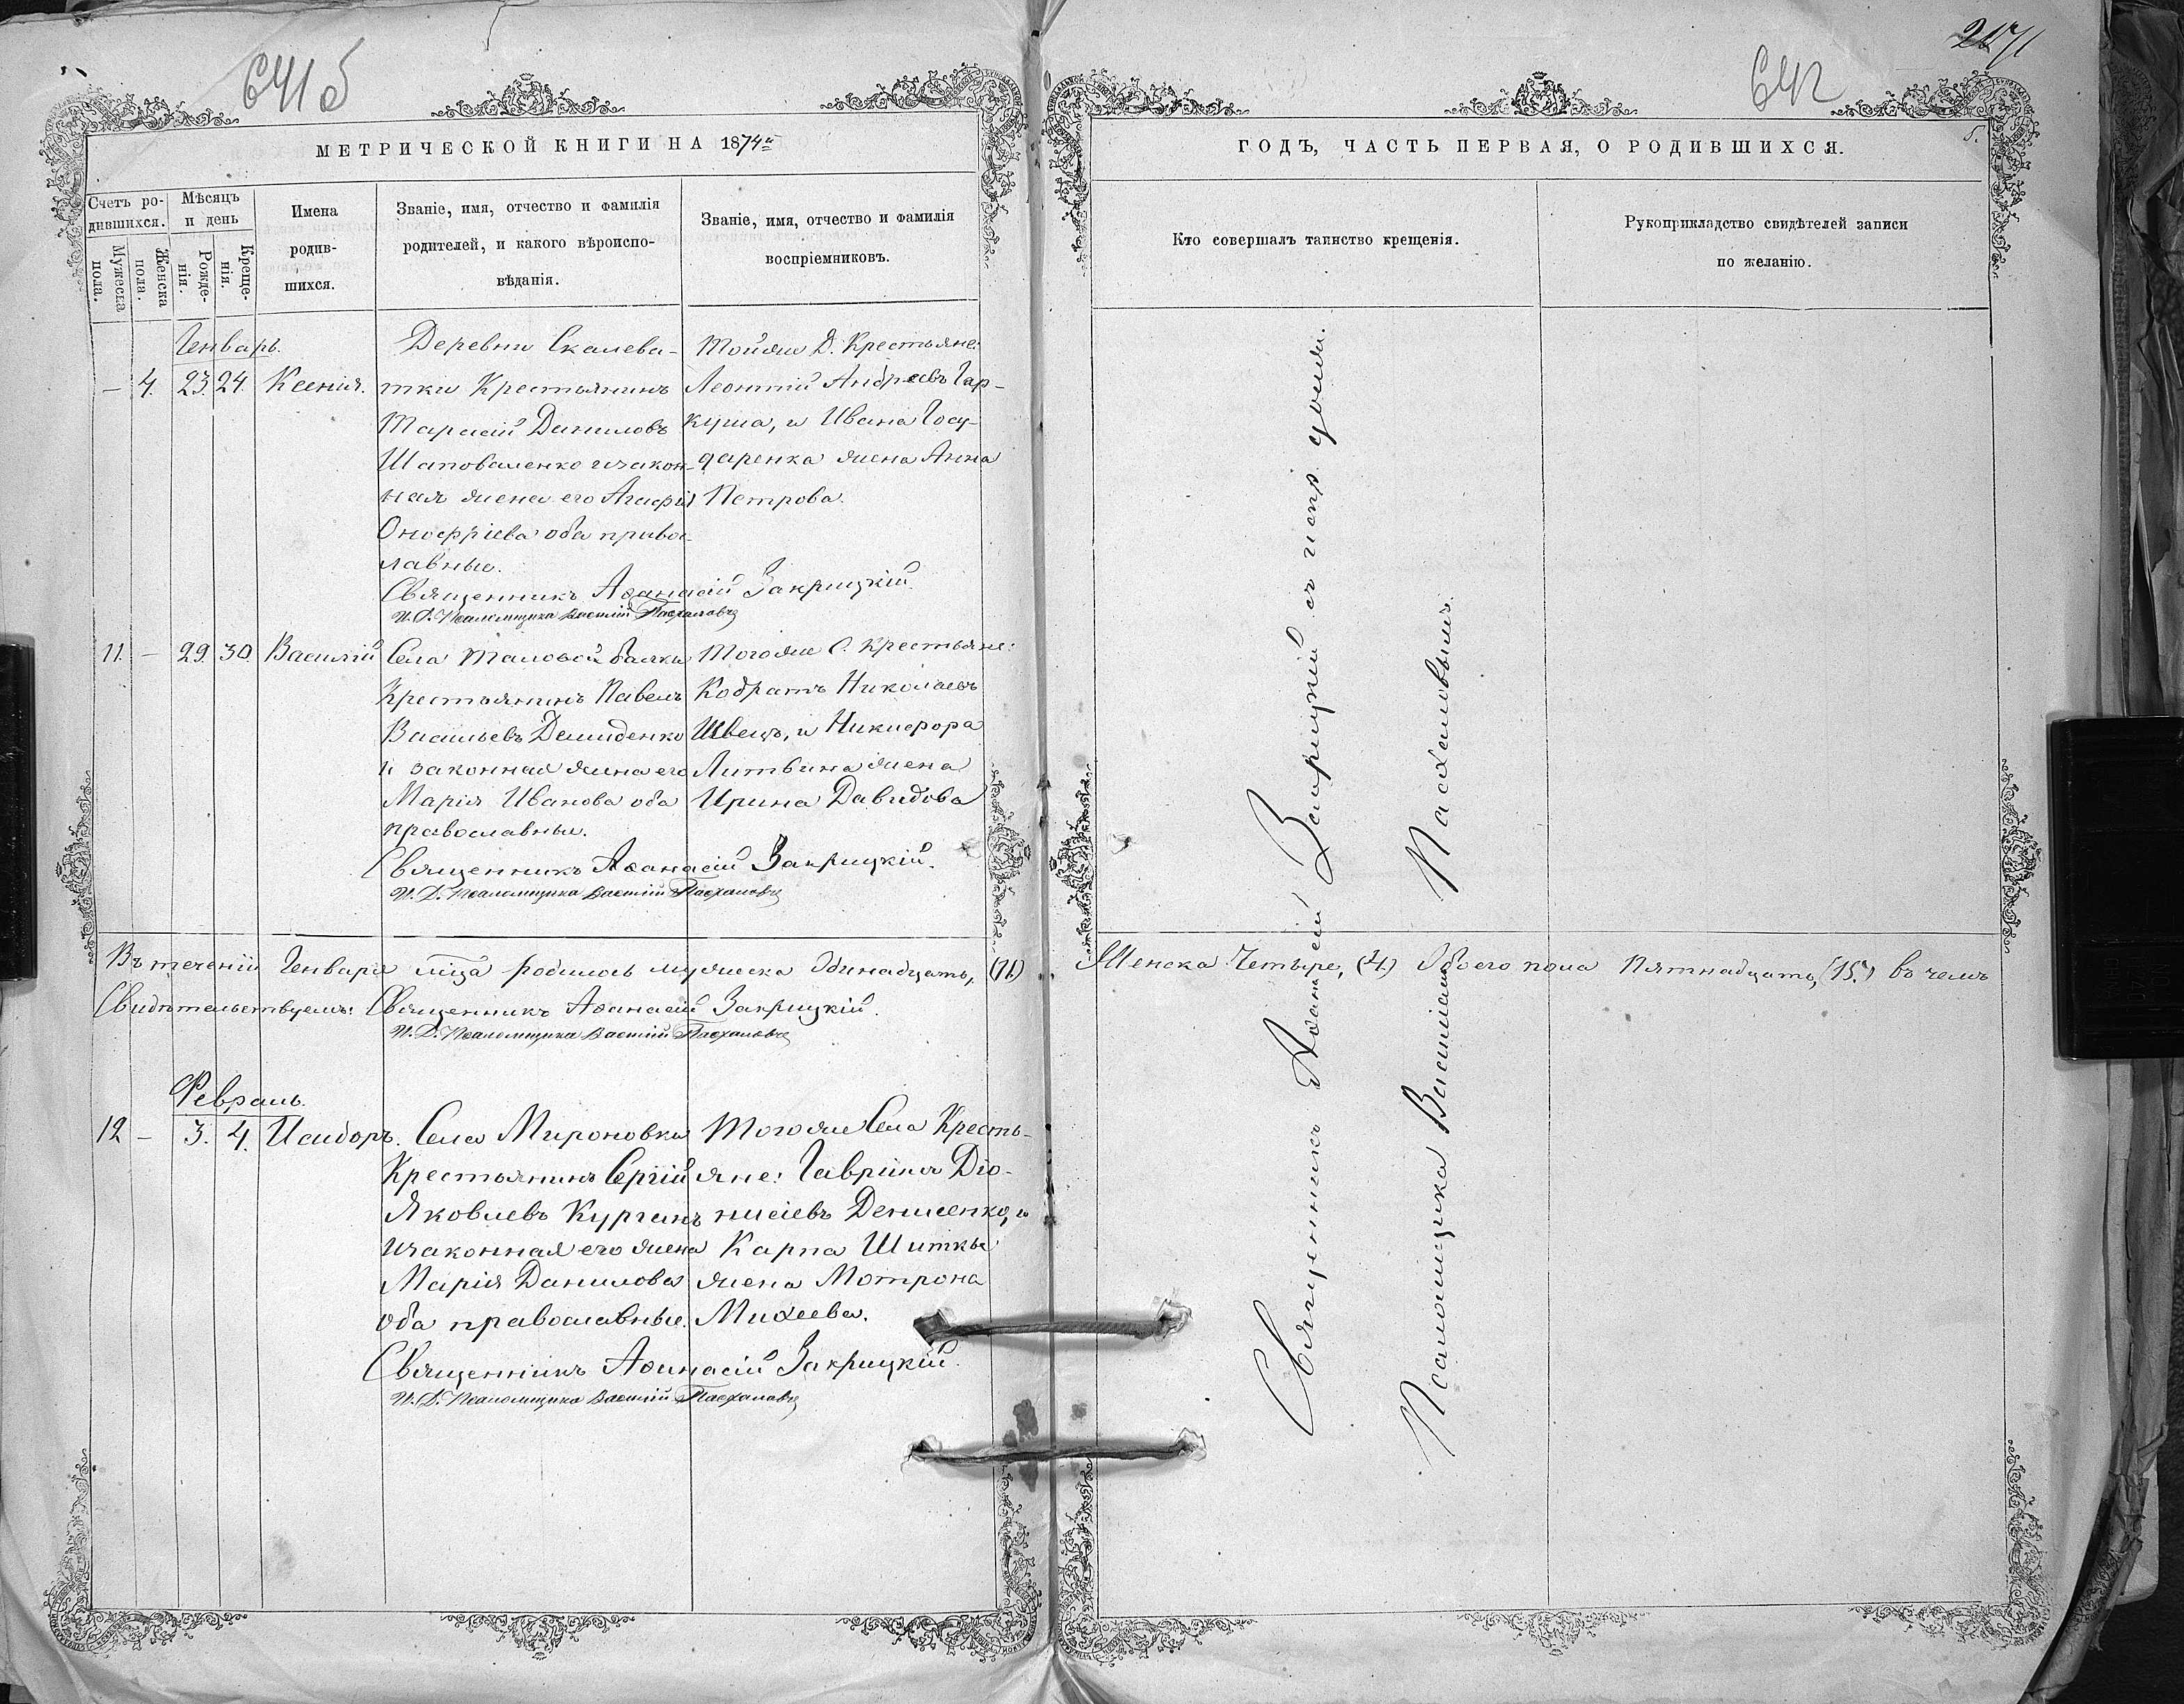 641 б
МЕТРИЧЕСКОЙ КНИГИ НА 1874й
Счетъ ро-
дившихся.
Мужеска пола.
Женска пола.
Мѣсяцъ
и день
Рожде-
нія.
Креще-
нія.
Имена
родив-
шихся.
Званіе, имя, отчество и фамилія
родителей, и какого вѣроиспо-
вѣданія.
Званіе, имя, отчество и фамилія
воспріемниковъ.
Генварь.
— 4. 23. 24. Ксенія.
Деревни Скалева-
тки Крестьянинъ
Тарасій Даниловъ
Шаповаленко и закон-
ная жена его Агафія
Онофріева оба право-
славные.
Тойже Д. Крестьяне:
Леонтій Андреевъ Гар-
куша, и Ивана Госу-
даренка жена Анна
Петрова.
Священникъ Аѳанасій Закрицкій
И. Д. Псаломщика Василій Пасхаловъ
11. — 29. 30. Василій
Села Таловой балки
Крестьянинъ Павелъ
Васильевъ Демиденко
и законная жена его
Марія Иванова оба
православные.
Тогоже С. Крестьяне:
Кодратъ Николаевъ
Швецъ, и Никифора
Литвина жена
Ирина Давидова
Священникъ Аѳанасій Закрицкій.
И. Д. Псаломщика Василій Пасхаловъ
Въ теченіи Генваря мца родилось мужеска Одинадцать, (11)
Свидѣтельствуемъ: Священникъ Аѳанасій Закрицкій.
И. Д. Псаломщика Василій Пасхаловъ
Февраль.
12 — 3. 4. Исидоръ.
Села Мироновки
Крестьянинъ Сергій
Яковлевъ Курганъ
и законная его жена
Марія Данилова
оба православные.
Тогоже Села Кресть-
яне: Гавріилъ Діо-
нисіевъ Денисенко, и
Карпа Шитки
жена Мотрона
Михеева.
Священникъ Аѳанасій Закрицкій.
И. Д. Псаломщика Василій Пасхаловъ
642
5.
ГОДЪ, ЧАСТЬ ПЕРВАЯ, О РОДИВШИХСЯ.
Кто совершалъ таинство крещенія.
Рукоприкладство свидѣтелей записи
по желанію.
Священникъ Аѳанасій Закрицкій съ испр. долж.
Псаломщика Василіемъ Пасхаловымъ.
Женска Четыре, (4.) Обоего пола Пятнадцать, (15.) въ чемъ